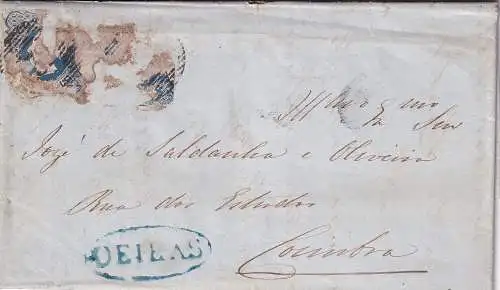 Illmo e Exmo
Snr
José de Saldanha e Oliveira
Rua dos Estudos
Coimbra
OEIRAS